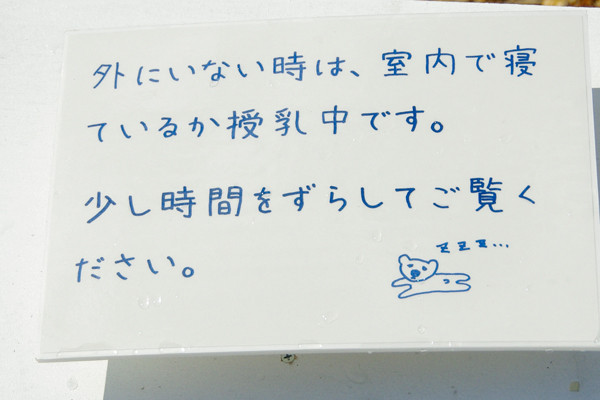 外にいない時は、室内で寝
ているか授乳中です。
少し時間をずらしてご覧く
ださい。
zzz...